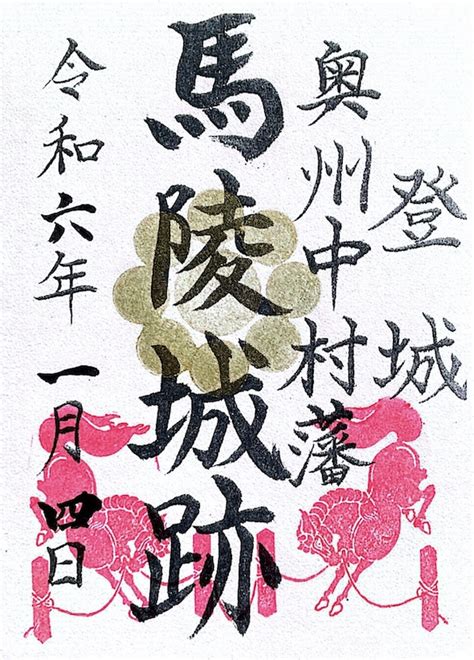 登城
奥州中村藩
馬陵城跡
令和六年一月四日